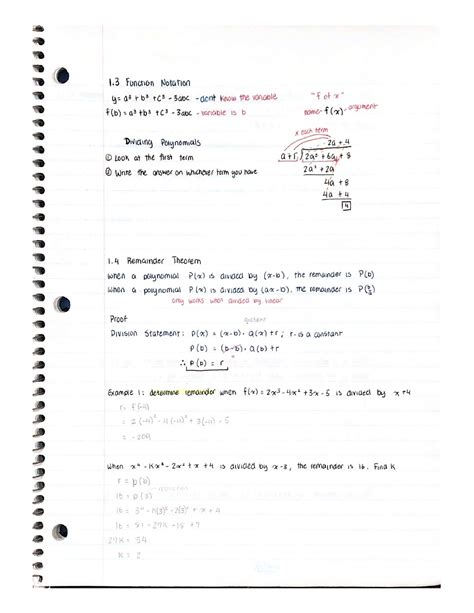 1.3 Function Notation
y = a³ + b³ + c³ - 3abc - dont know the variable
"f of x"
f(b) = a³ + b³ + c³ - 3abc - variable is b
name - f(x) - argument
Dividing Polynomials
x each term
① Look at the first term
② Write the answer on whichever term you have
2a + 4
a+1 ) 2a² + 6a + 8
2a² + 2a
4a + 8
4a + 4
4
1.4 Remainder Theorem
When a polynomial P(x) is divided by (x-b), the remainder is P(b)
When a polynomial P(x) is divided by (ax-b), the remainder is P(b/a)
only works when divided by linear
Proof
quotient
Division Statement: P(x) = (x-b) · Q(x) + r ; r is a constant
P(b) = (b-b) · Q(b) + r
∴ P(b) = r
Example 1: determine remainder when f(x) = 2x³ - 4x² + 3x - 5 is divided by x+4
r = f(-4)
= 2(-4)³ - 4(-4)² + 3(-4) - 5
= -209
When x⁴ - Kx³ - 2x² + x + 4 is divided by x-3, the remainder is 16. Find K
r = p(b)
16 = p(3)
16 = 3⁴ - K(3)³ - 2(3)² + x + 4
16 = 81 - 27K - 18 + 7
27K = 54
K = 2